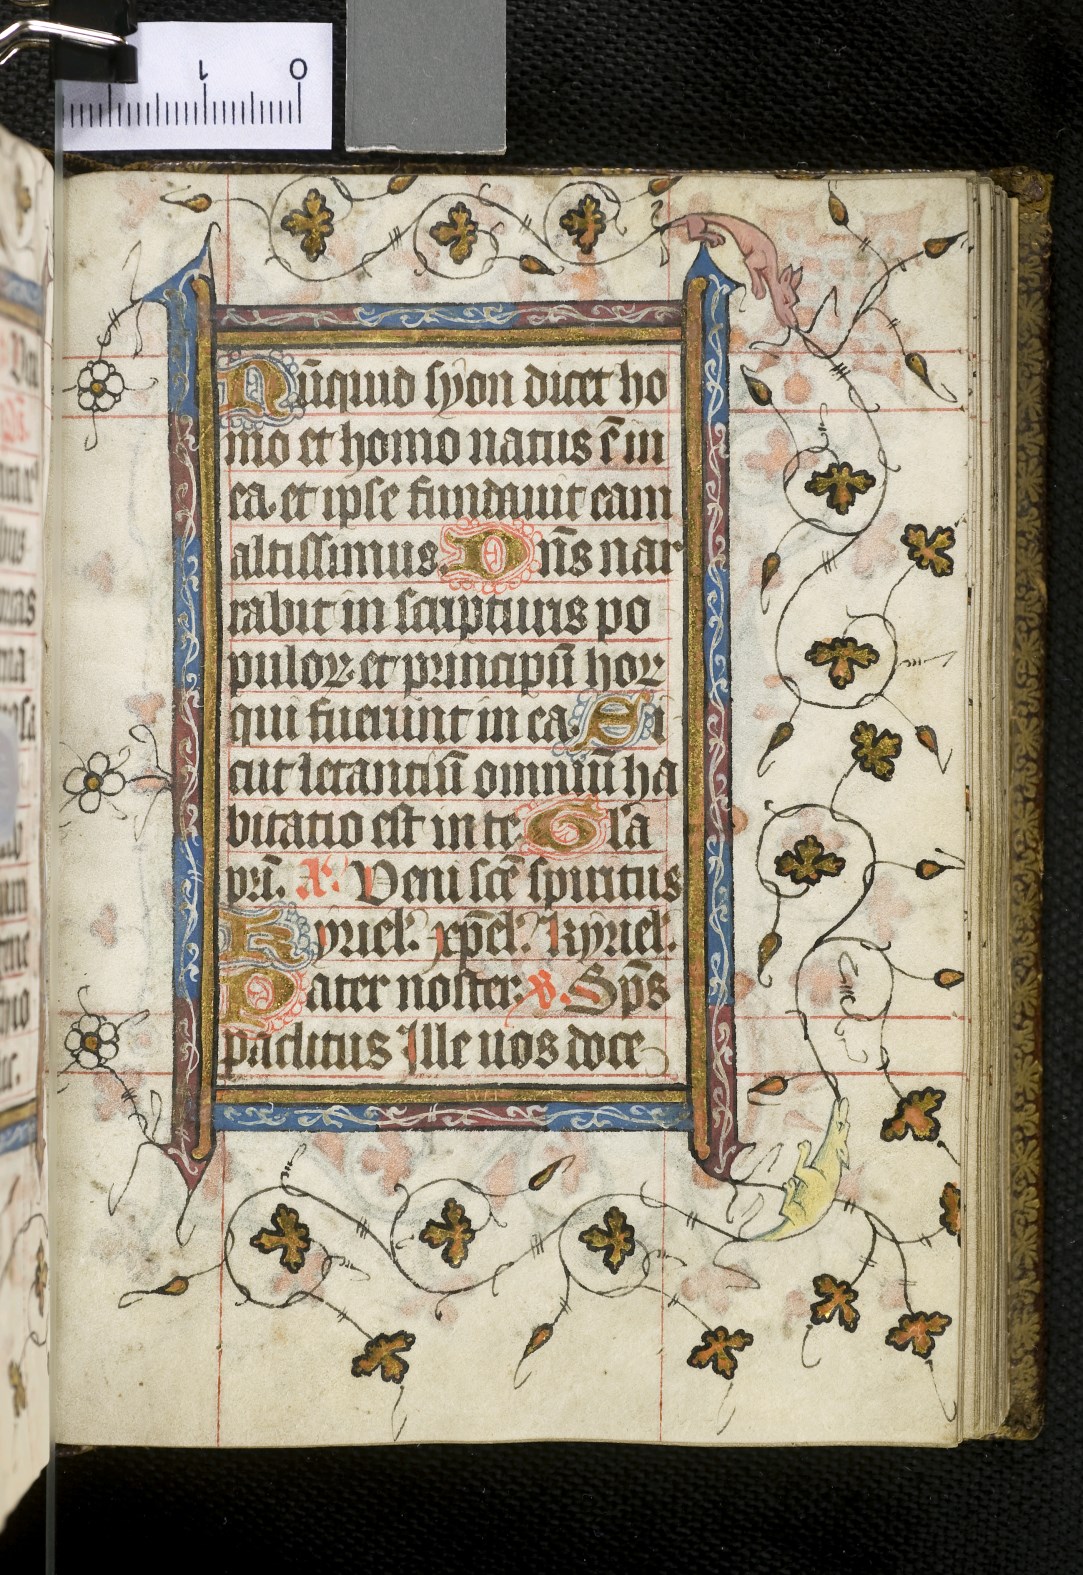 1 0
Nūquid syon dicet ho
mo et homo natus ē in
ea et ipse fundauit eam
altissimus. Dn̄s nar
rabit in scripturis po
puloꝝ et principū hoꝝ
qui fuerunt in ea. Si
cut letantiū omniū ha
bitatio est in te. Gl'a
pr̄i. A. Veni sc̄e spiritus
Kyriel'. xp̄el'. kyriel'.
Pater noster. V. Sp̄s
paclitus Ille uos doce